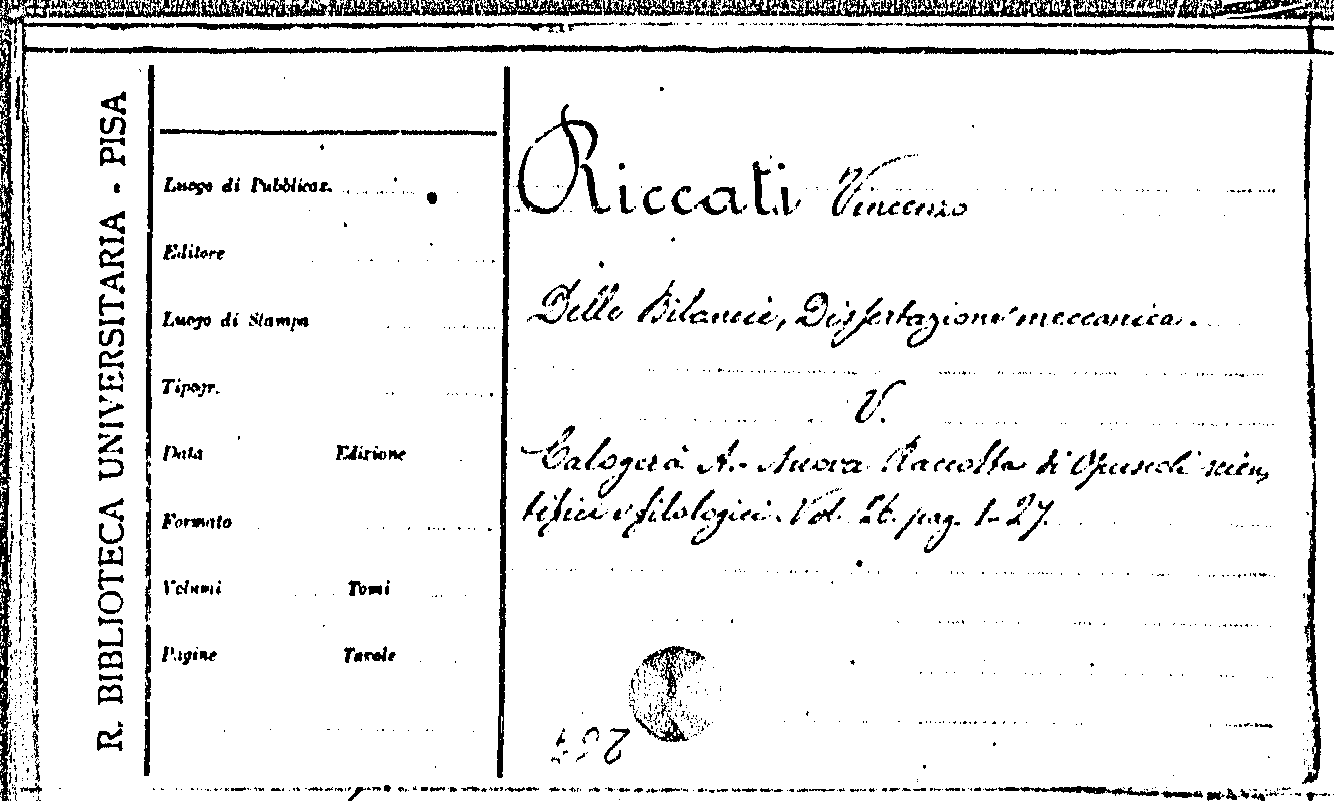 R. BIBLIOTECA UNIVERSITARIA - PISA
Luogo di Pubblicaz.
Editore
Luogo di Stampa
Tipogr.
Data Edizione
Formato
Volumi Tomi
Pagine Tavole
Riccati Vincenzo
Delle Bilancie, Dissertazione meccanica.
V.
Calogerà A. - Nuova Raccolta di Opuscoli scien,
tifici e filologici. Vol. 26. pag. 1-27.